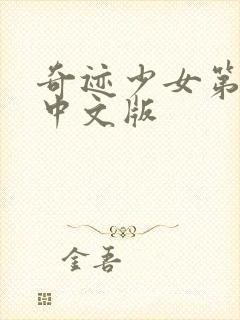 奇迹少女第
中文版
金吾